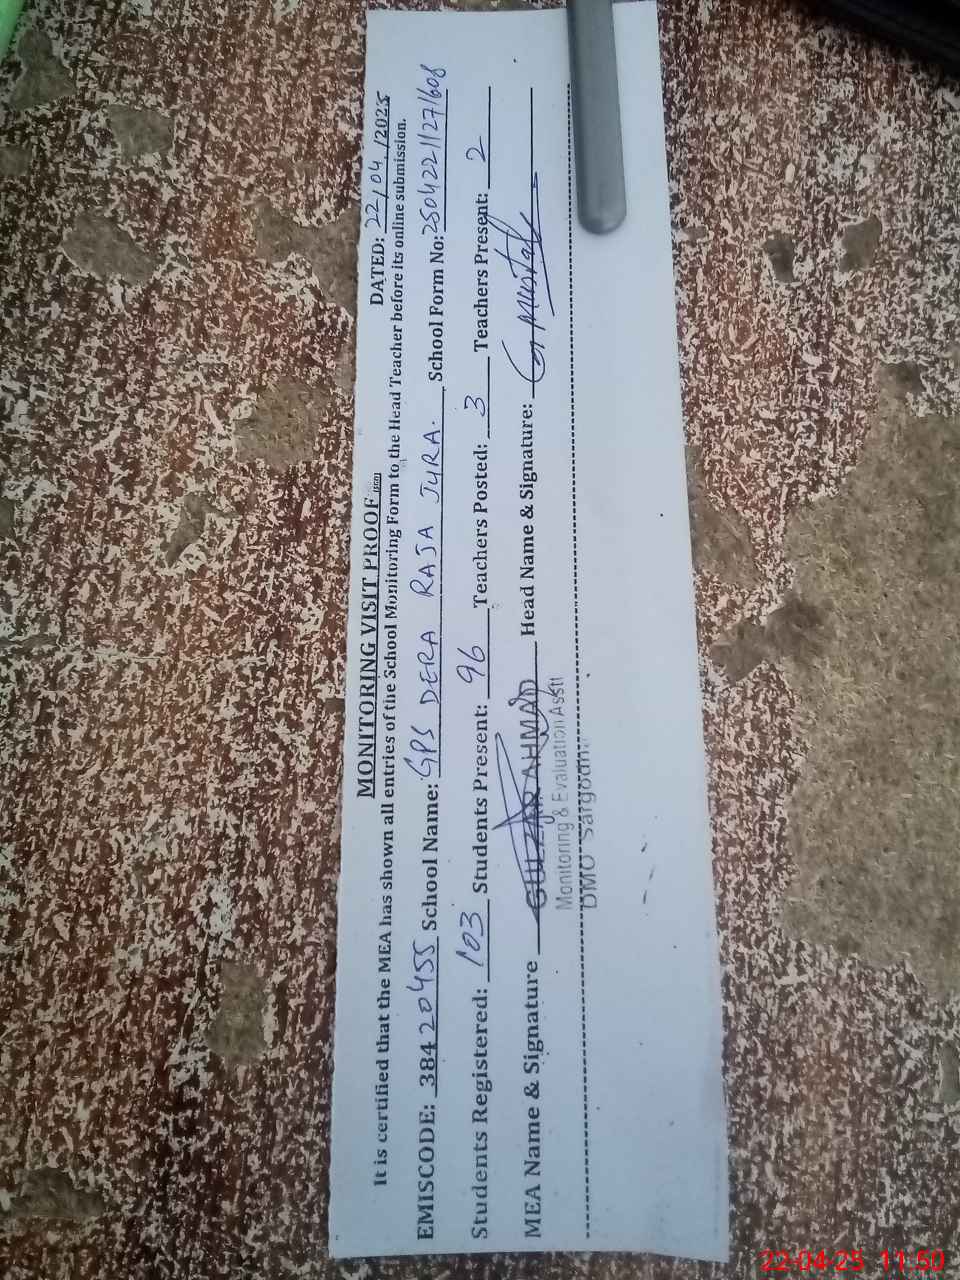 MONITORING VISIT PROOF DATED: 22/04/2025
It is certified that the MEA has shown all entries of the School Monitoring Form to the Head Teacher before its online submission.
EMISCODE: 38420455 School Name: GPS DERA RAJA JURA. School Form No: 25042211271608
Students Registered: 103 Students Present: 96 Teachers Posted: 3 Teachers Present: 2
MEA Name & Signature GULZAR AHMAD Head Name & Signature: G. Mustafa
Monitoring & Evaluation Asstt
DMO Sargodha
22-04-25 11:50